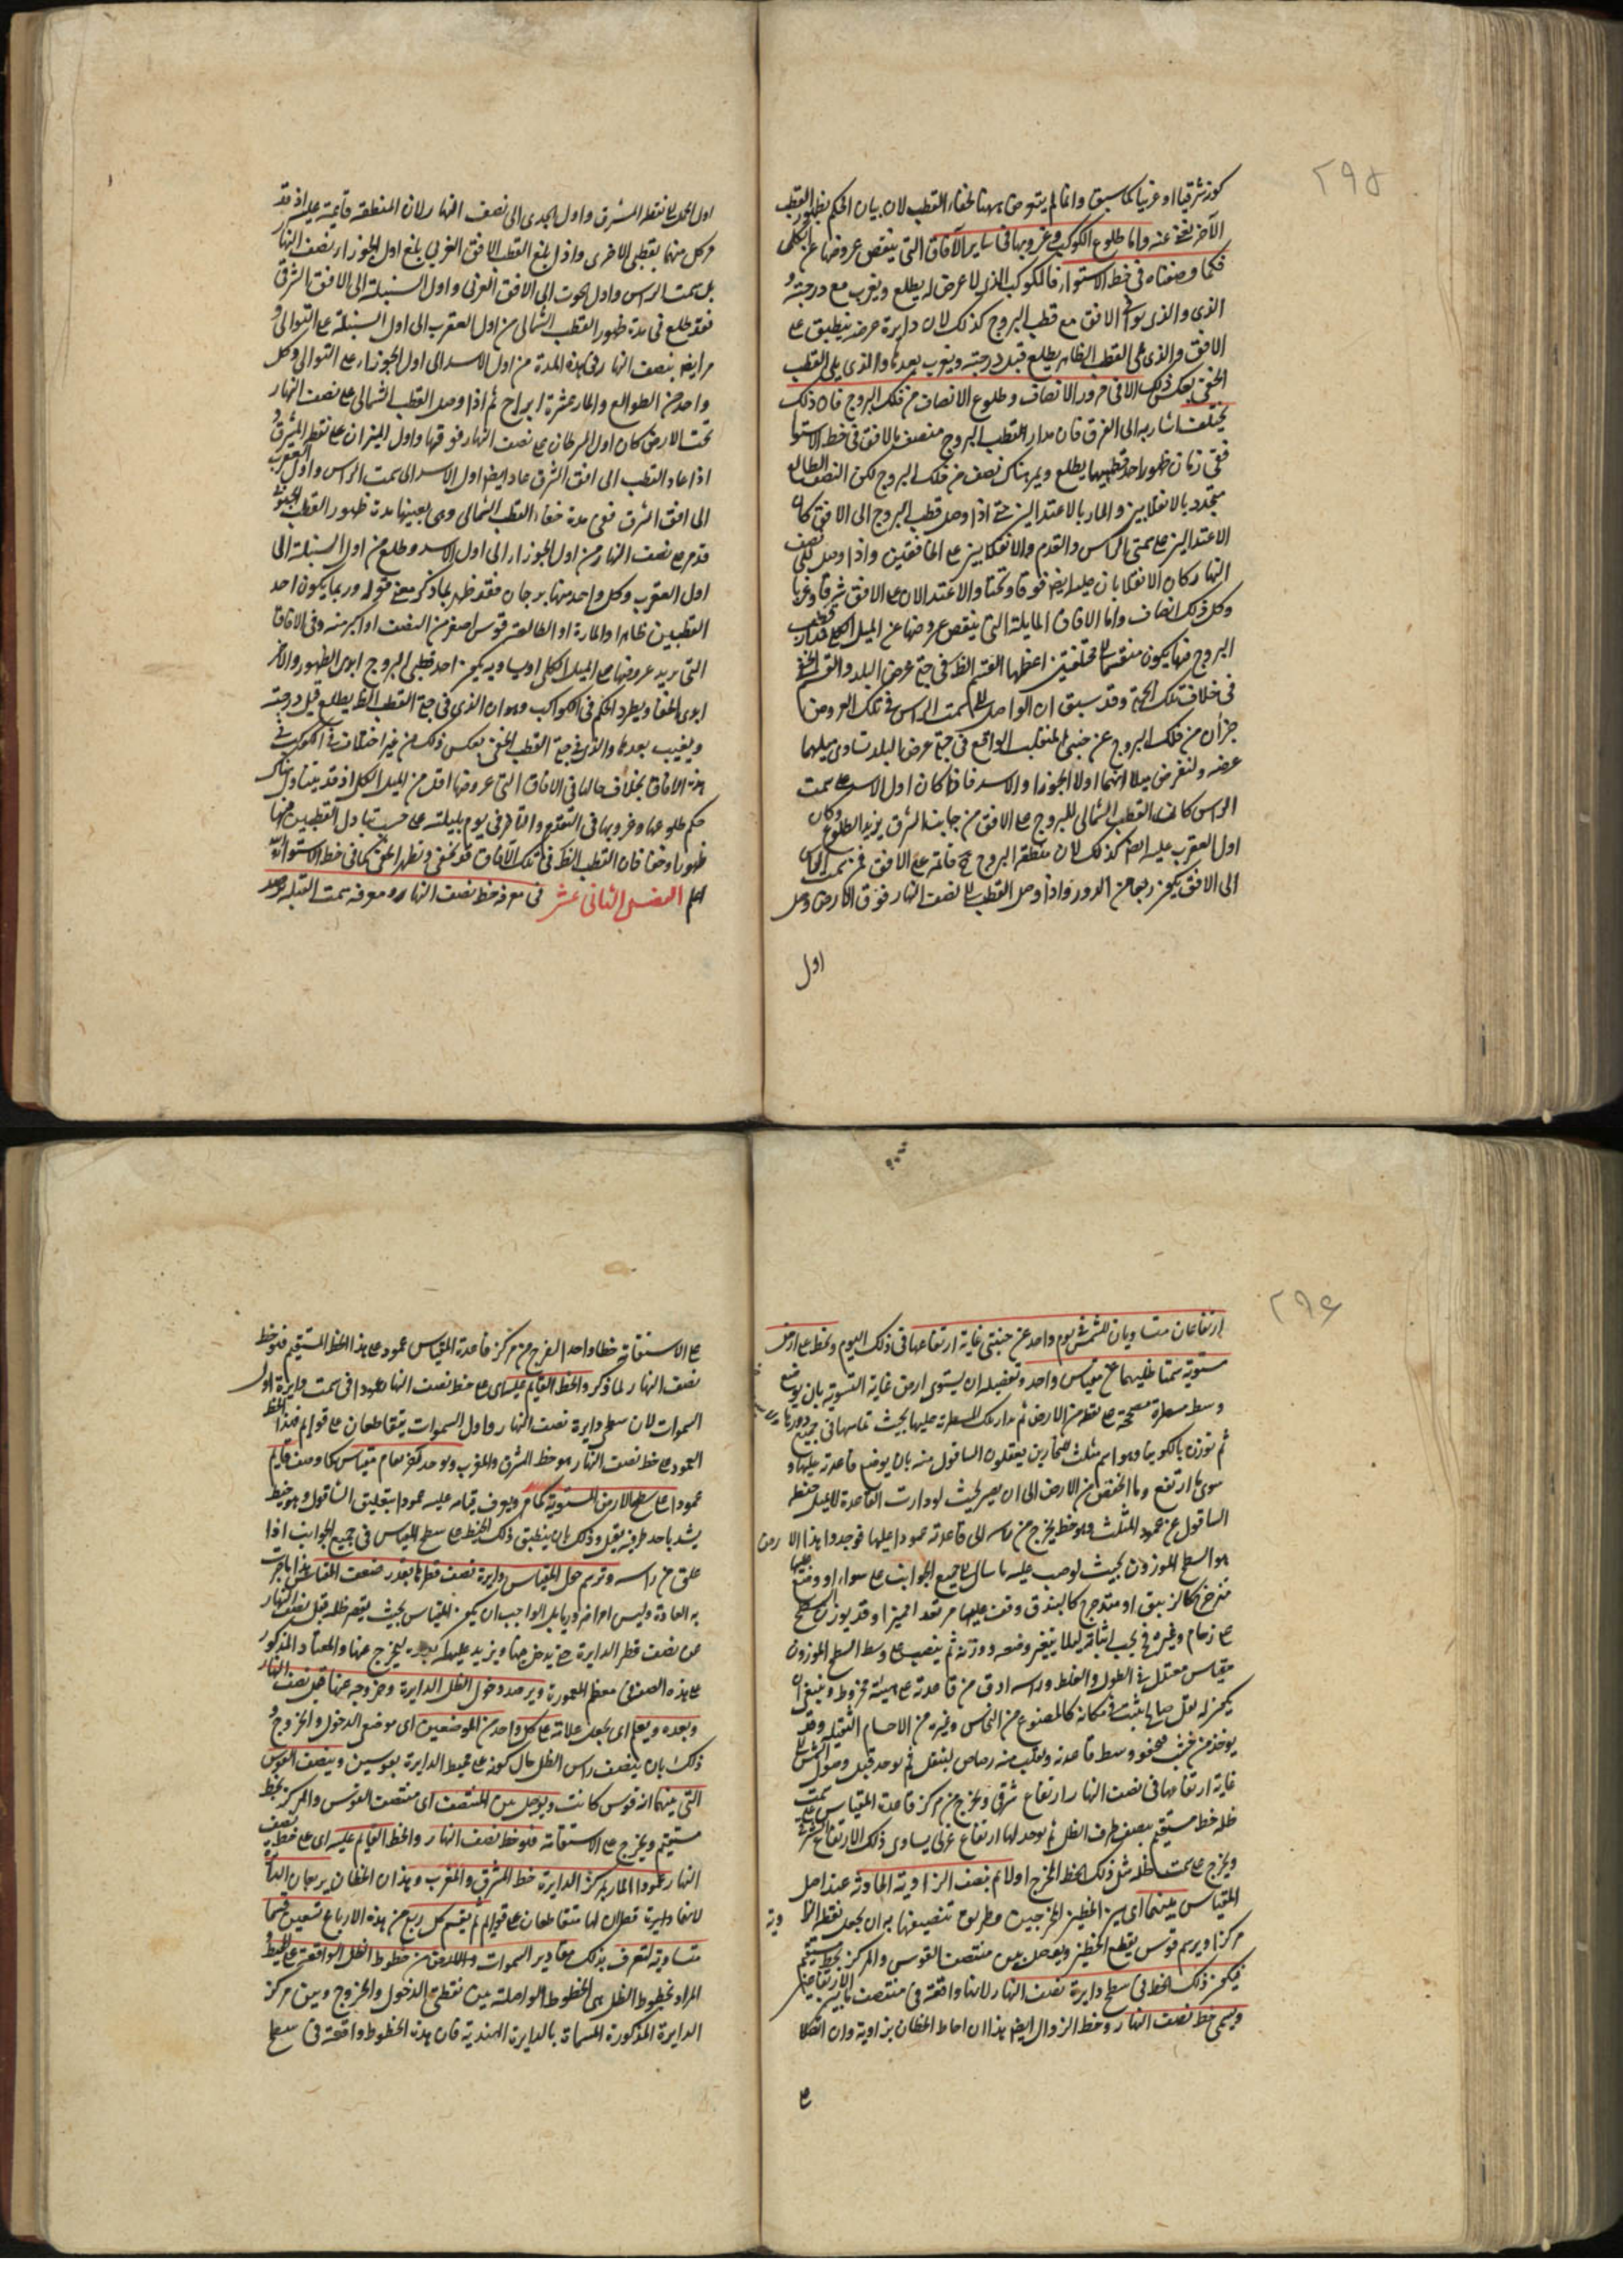 ٢٩٥
كونه شرقيا او غربيا كما سبق وانما لم يتعرض ههنا لخفاء القطب لان بيان الحكم بظهور القطب
الآخر يغنى عنه واما طلوع الكوكب وغروبها فى ساير الآفاق التى ينقص عروضها عن الكلى
فكما وصفناه فى خط الاستواء فالكوكب الذى لا عرض له يطلع ويغرب مع درجته و
الذى والذى يوافى الافق مع قطب البروج كذلك لان دايرة عرضه ينطبق على
الافق والذى يلى القطب الظاهر يطلع قبل درجته ويغرب بعدها والذى يلى القطب
الخفى بعكس ذلك الا فى مرور الانصاف وطلوع الانصاف من فلك البروج فان ذلك
يختلف اشار به الى الفرق فان مدار القطب البروج منصف بالافق فى خط الاستوا
ففى زمان ظهور احد قطبيها يطلع ويمر هناك نصف من فلك البروج لكن النصف الطالع
يتحدد بالانقلابين والمار بالاعتدالين حتى اذا وصل قطب البروج الى الافق كان
الاعتدالين على سمتى الراس والقدم والانقلابين على الخافقين واذا وصل الى نصف
النهار كان الانقلابان عليه ايضا فوقا وتحتا والاعتدالان على الافق شرقا وغربا
وكل ذلك انصاف واما الآفاق المايلة التى ينقص عروضها عن الميل الكلى فمدار قطب
البروج فيها يكون منقسما الى مختلفتين اعظمها القسم الظ فى جهة عرض البلد والقسم الخفى
فى خلاف تلك الجهة وقد سبق ان الواصل الى سمت الراس فى تلك العروض
جزآن من فلك البروج عن جنبتى المنقلب الواقع فى جهة عرض البلد تساوى ميلهما
عرضه ولنفرض مثلا انهما اولا الجوزا والاسد فاذا كان اول الاسد على سمت
الراس كان القطب الشمالى للبروج على الافق من جانب الشرق يريد الطلوع وكان
اول العقرب عليه ايضا كذلك لان منطقة البروج ح قائمة على الافق فمن سمت الراس
الى الافق يكون ربعا من الدور واذا وصل القطب الى نصف النهار فوق الارض وصل
اول
اول الحمل الى نقطة المشرق واول الجدى الى نصف النهار لان المنطقة قائمة عليه اذ قد
مر كل منهما بقطبى الاخرى واذا بلغ القطب الافق الغربى بلغ اول الجوزا نصف النهار
بل سمت الراس واول الحوت الى الافق الغربى واول السنبلة الى الافق الشرقى
فقد طلع فى مدة ظهور القطب الشمالى من اول العقرب الى اول السنبلة على التوالى و
مر ايضا بنصف النهار فى هذه المدة من اول الاسد الى اول الجوزاء على التوالى وكل
واحد من الطوالع والمار عشرة ابراج ثم اذا وصل القطب الشمالى على نصف النهار
تحت الارض كان اول السرطان على نصف النهار فوقها واول الميزان على نقطة المشرق و
اذا عاد القطب الى افق الشرق عاد ايضا اول الاسد الى سمت الراس واول العقرب
الى افق الشرق ففى مدة خفاء القطب الشمالى وهى بعينها مدة ظهور القطب الجنوبى
قد مر على نصف النهار من اول الجوزاء الى اول الاسد وطلع من اول السنبلة الى
اول العقرب وكل واحد منها برجان فقد ظهر بما ذكر معنى قوله وربما يكون احد
القطبين ظاهرا والمارة او الطالعة قوس اصغر من النصف او اكبر منه وفى الآفاق
التى يزيد عروضها على الميل الكلى او يساويه يكون احد قطبى البروج ابدى الظهور والآخر
ابدى الخفا ويطرد الحكم فى الكواكب وهو ان الذى فى جهة القطب الظ يطلع قبل درجته
ويغيب بعدها والذى فى جهة القطب الخفى بعكس ذلك من غير اختلاف فى الكوكب فى
هذه الآفاق بخلاف حالها فى الآفاق التى عروضها اقل من الميل الكلى اذ قد يتبادل هناك
حكم طلوعها وغروبها فى التقدم والتاخر فى يوم بليلته على حسب تبادل القطبين منها
ظهورا وخفا فان القطب الظ فى تلك الآفاق قد يخفى ويظهر الخفى كما فى خط الاستوا والله
اعلم الفصل الثانى عشر فى معرفة خط نصف النهار ومعرفة سمت القبلة يرصد
٢٩٦
ارتفاعان متساويان للشمس فى يوم واحد عن جنبتى غاية ارتفاعها فى ذلك اليوم ويخط على ارض
مستوية سمتا ظليهما عن مقياس واحد وتفصيله ان يستوى ارض غاية التسوية بان يوضع
وسط مسطرة مصححة على نقطة من الارض ثم يدار تلك المسطرة عليها بحيث تماسها فى جميع دوراتها
ثم توزن بالكونيا وهو اسم مثلث للنجارين يعقلون الساقول منه بان يوضع قاعدته عليها و
سوى ما ارتفع وما انخفض من الارض الى ان يصير بحيث لو دارت القاعدة لا يميل خيط
الساقول عن عمود المثلث وهو خط يخرج من راسه الى قاعدته عمودا عليها فوجدوا هذا الارض
هو السطح الموزون بحيث لو صب عليه ما سال الى جميع الجوانب على سواء او وضع عليها
مترجرج كالزيبق او متدحرج كالبندق وقف عليها مرتعدا متميزا وقد يوزن سطح
على رخام وغيره فح يجب اثباته ليلا يتغير وضعه ووزنه ثم ينصب على وسط السطح الموزون
مقياس معتدل فى الطول والغلظ وراسه ادق من قاعدته على هيئة مخروط وينبغى ان
يكون له ثقل صالح ليثبت فى مكانه كالمصنوع من النحاس ونحوه من الاجسام الثقيلة وقد
يوخذ من خشب محفور وسط قاعدته ويصب فيه رصاص ليثقل ثم يوجد قبل وصول الشمس الى
غاية ارتفاعها فى نصف النهار ارتفاع شرقى ويخرج من مركز قاعدة المقياس على سمت
ظله خط مستقيم بنصف طرف الظل ثم يوجد لها ارتفاع غربى يساوى ذلك الارتفاع الشرقى
ويخرج على سمت ظله مثل ذلك الخط المخرج اولا ثم ينصف الزاوية الحادثة عند اصل
المقياس بينهما اى بين الخطين المخرجين وطريق تنصيفها هو ان يجعل نقطة الزاوية
مركزا ويرسم قوس يقطع الخطين ويوصل بين منتصف القوس والمركز بخط مستقيم
فيكون ذلك الخط فى سطح دايرة نصف النهار لانها واقعة فى منتصف ما بين الارتفاعين
ويسمى خط نصف النهار وخط الزوال ايضا هذا ان احاط الخطان بزاوية وان اتصلا
على
على الاستقامة خطا واحدا اخرج من مركز قاعدة المقياس عمود على هذا الخط المستقيم فهو خط
نصف النهار لما ذكر والخط القايم عليه اى على خط نصف النهار عمودا فى سمت دايرة اول
السموات لان سطحى دايرة نصف النهار واول السموات يتقاطعان على قوائم فهذا الخط
العمود على خط نصف النهار هو خط المشرق والمغرب ويوجد كفر بعام مقياس كما وصف قايم
عمودا على سطح الارض المستوية كما مر ويعرف قيامه عليه عمودا بتعليق الشاقول وهو خيط
يشد باحد طرفيه ثقيل وذلك بان ينطبق ذلك الخيط على سطح المقياس فى جميع الجوانب اذا
علق من راسه وترسم حول المقياس دايرة نصف قطرها بقدر ضعف المقياس هذا ما جرت
به العادة وليس امرا ضروريا بل الواجب ان يكون المقياس بحيث يقصر ظله قبل نصف النهار
عن نصف قطر الدايرة حتى يدخل فيها ويزيد عليها بعده ليخرج عنها والمعتاد المذكور
على هذه الصفة فى معظم المعمورة ويرصد دخول الظل الدايرة وخروجه عنها قبل نصف النهار
وبعده ويعلم اى يجعل علامة على كل واحد من الموضعين اى موضع الدخول والخروج و
ذلك بان ينصف راس الظل حال كونه على محيط الدايرة بقوسين وينصف القوس
التى بينهما اية قوس كانت ويوصل بين المنتصف اى منتصف القوس والمركز بخط
مستقيم ويخرج على الاستقامة فهو خط نصف النهار والخط القايم عليه اى على خط نصف
النهار عمودا المار بمركز الدايرة خط المشرق والمغرب وهذان الخطان يربعان الدايرة
لانها دايرة قطران لها متقاطعان على قوائم ثم يقسم كل ربع من هذه الارباع تسعين قسما
متساوية لتعرف بذلك مقادير السموات واللذين من خطوط الظل الواقعة على المحيط
المراد بخطوط الظل هى الخطوط الواصلة بين نقطتى الدخول والخروج وبين مركز
الدايرة المذكورة المسماة بالدايرة الهندية فان هذه الخطوط واقعة فى سطح